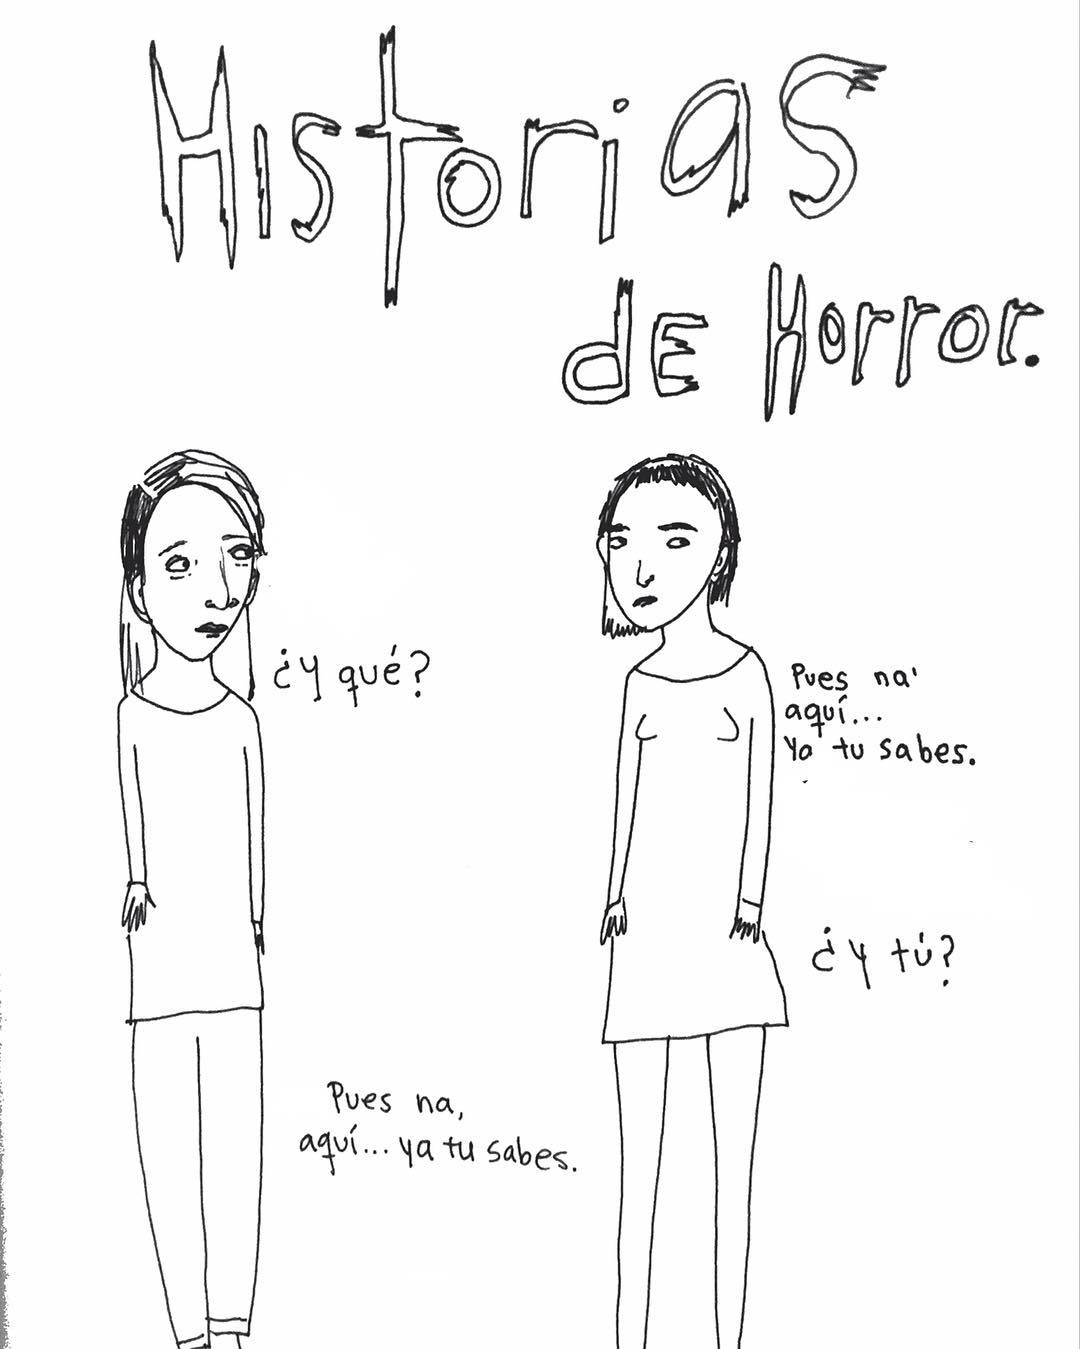 Historias
de Horror.
¿Y qué?
Pues na'
aquí...
Ya tu sabes.
¿Y tú?
Pues na,
aquí... ya tu sabes.